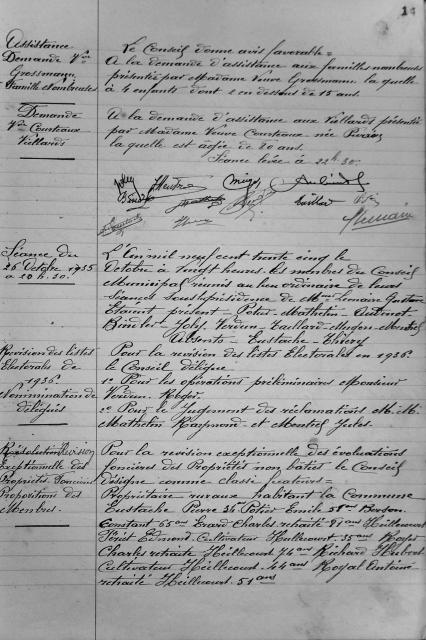 14
Assistance
Demande Vve
Grossmann
Famille Nombreuses
Le Conseil donne avis favorable =
A la demande d'assistance aux familles nombreuses
présentée par Madame Veuve Grossmann la quelle
à 4 enfants dont 2 en dessous de 15 ans.
Demande
Vve Courteaux
Vieillards
A la demande d'assistance aux Vieillards présentée
par Madame Veuve Courteaux née
la quelle est agée de 70 ans.
Séance levée à 22h 30.
Séance du
26 Octobre 1935
à 20 h. 30.
L'An mil neuf cent trente cinq le
Octobre à vingt heures. les membres du Conseil
Municipal réunis au lieu ordinaire de leurs
Séances sous la présidence de Mr Lemaire Gustave
Etaient présent Potier Mathelin
Binder Joly. Verdun Vaillard Mugon Montiel
Absents - Eustache - Thiery
Revision des listes
Electorales de
1936.
Nomination de
délégués
Pour la revision des listes Electorales en 1936.
le Conseil délègue
1º Pour les opérations préliminaires Monsieur
Verdun. Roger.
2º Pour le Jugement des réclamations M. M.
Mathelin Raymond et Montiel Jules.
Revision
Exceptionnelle des
Propriétés Foncières
Propositions des
Membres.
Pour la revision exceptionnelle des évaluations
foncières des Propriétés non baties le Conseil
désigne comme classificateurs =
Propriétaire ruraux habitant la Commune
Eustache Pierre Potier Emile 58 ans
Constant 65 ans Charles retraité Heillecourt
Edmond. Cultivateur 35 ans
Charles retraité Heillecourt 74 ans Richard Hubert
Cultivateur Heillecourt. 44 ans Royal Antoine
retraité Heillecourt. 51 ans